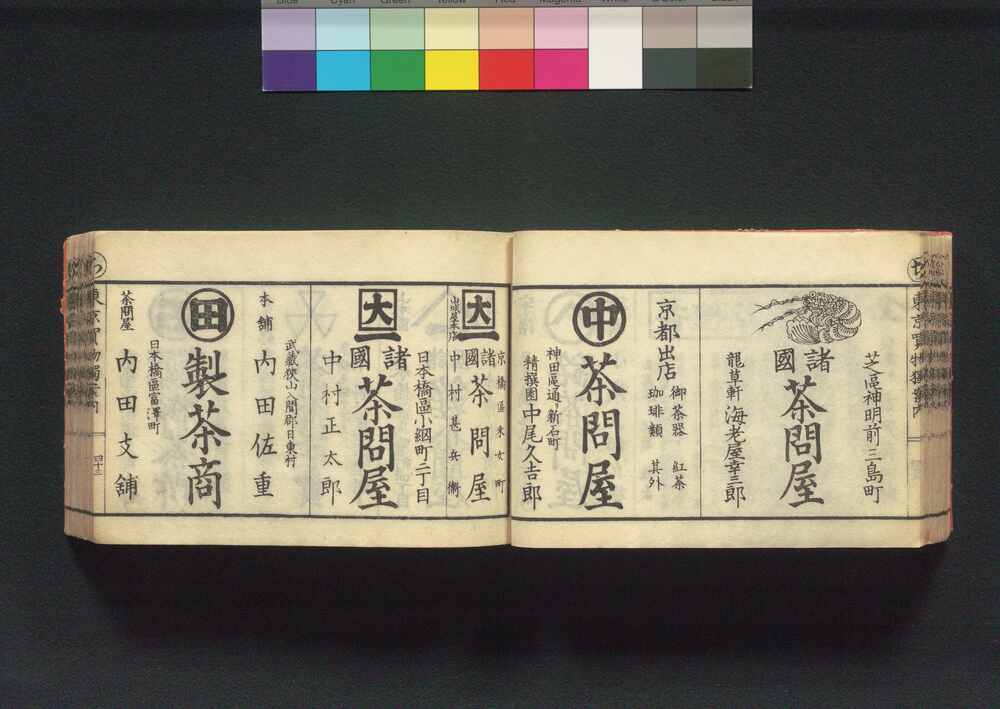 Cyan
Green
Yellow
Red
Magenta
東京買物獨案内
芝區神明前三島町
諸國
茶問屋
龍草軒 海老屋幸三郎
御茶器 紅茶
珈琲類 其外
京都出店
中
茶問屋
神田區通リ新石町
精撰園 中尾久吉郎
京橋區采女町
大
諸國
茶問屋
山城屋本店
中村甚兵衛
日本橋區小網町二丁目
大
諸國
茶問屋
中村正太郎
武藏狹山入間郡日東村
本舗 内田佐重
田
製茶商
日本橋區富澤町
茶問屋 内田支舗
東京買物獨案内
四十三